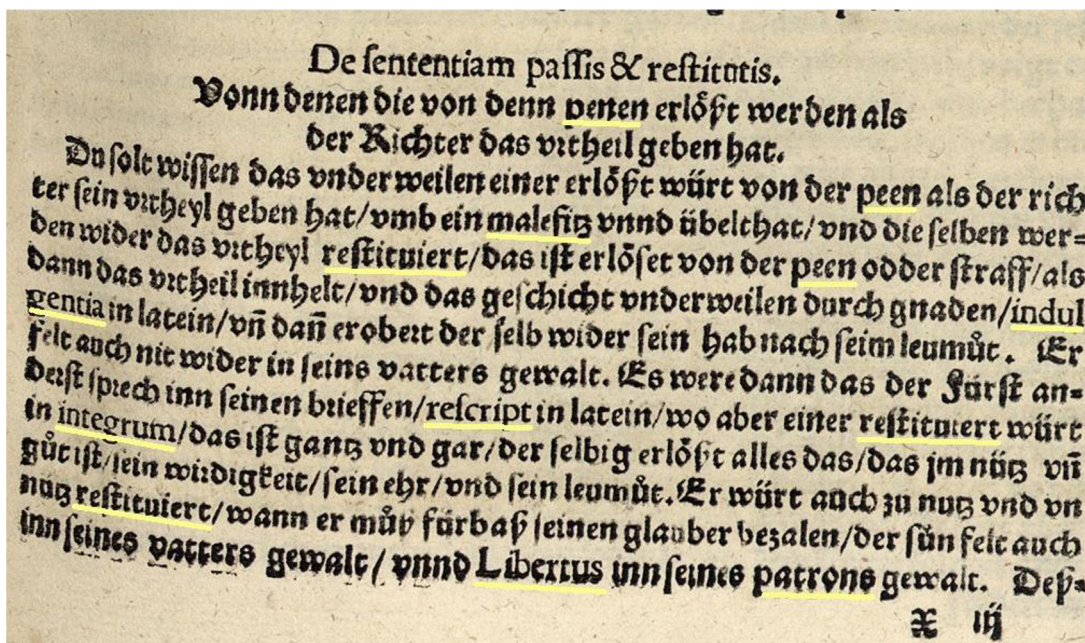 De ſententiam paſſis & reſtitutis.
Vonn denen die von denn penen erlöſzt werden als
der Richter das vrtheil geben hat.
Du ſolt wiſſen das vnderweilen einer erlöſzt würt von der peen als der rich
ter ſein vrtheyl geben hat/vmb ein malefitz vnnd übelthat/vnd die ſelben wer=
den wider das vrtheyl reſtituiert/das iſt erlöſet von der peen odder ſtraff/als
dann das vrtheil innhelt/vnd das geſchicht vnderweilen durch gnaden/indul
gentia in latein/vn̄ dan̄ erobert der ſelb wider ſein hab nach ſeim leumůt. Er
felt auch nit wider in ſeins vatters gewalt. Es were dann das der Fürſt an=
derſt ſprech inn ſeinen brieffen/reſcript in latein/wo aber einer reſtituiert würt
in integrum/das iſt gantz vnd gar/der ſelbig erlöſzt alles das/das jm nütz vn̄
gůt iſt/ſein wirdigkeit/ſein ehr/vnd ſein leumůt. Er würt auch zu nutz vnd vn
nutz reſtituiert/wann er můſz fürbaſz ſeinen glauber bezalen/der ſün felt auch
inn ſeines vatters gewalt/vnnd Libertus inn ſeines patrons gewalt. Deſz=
X iij